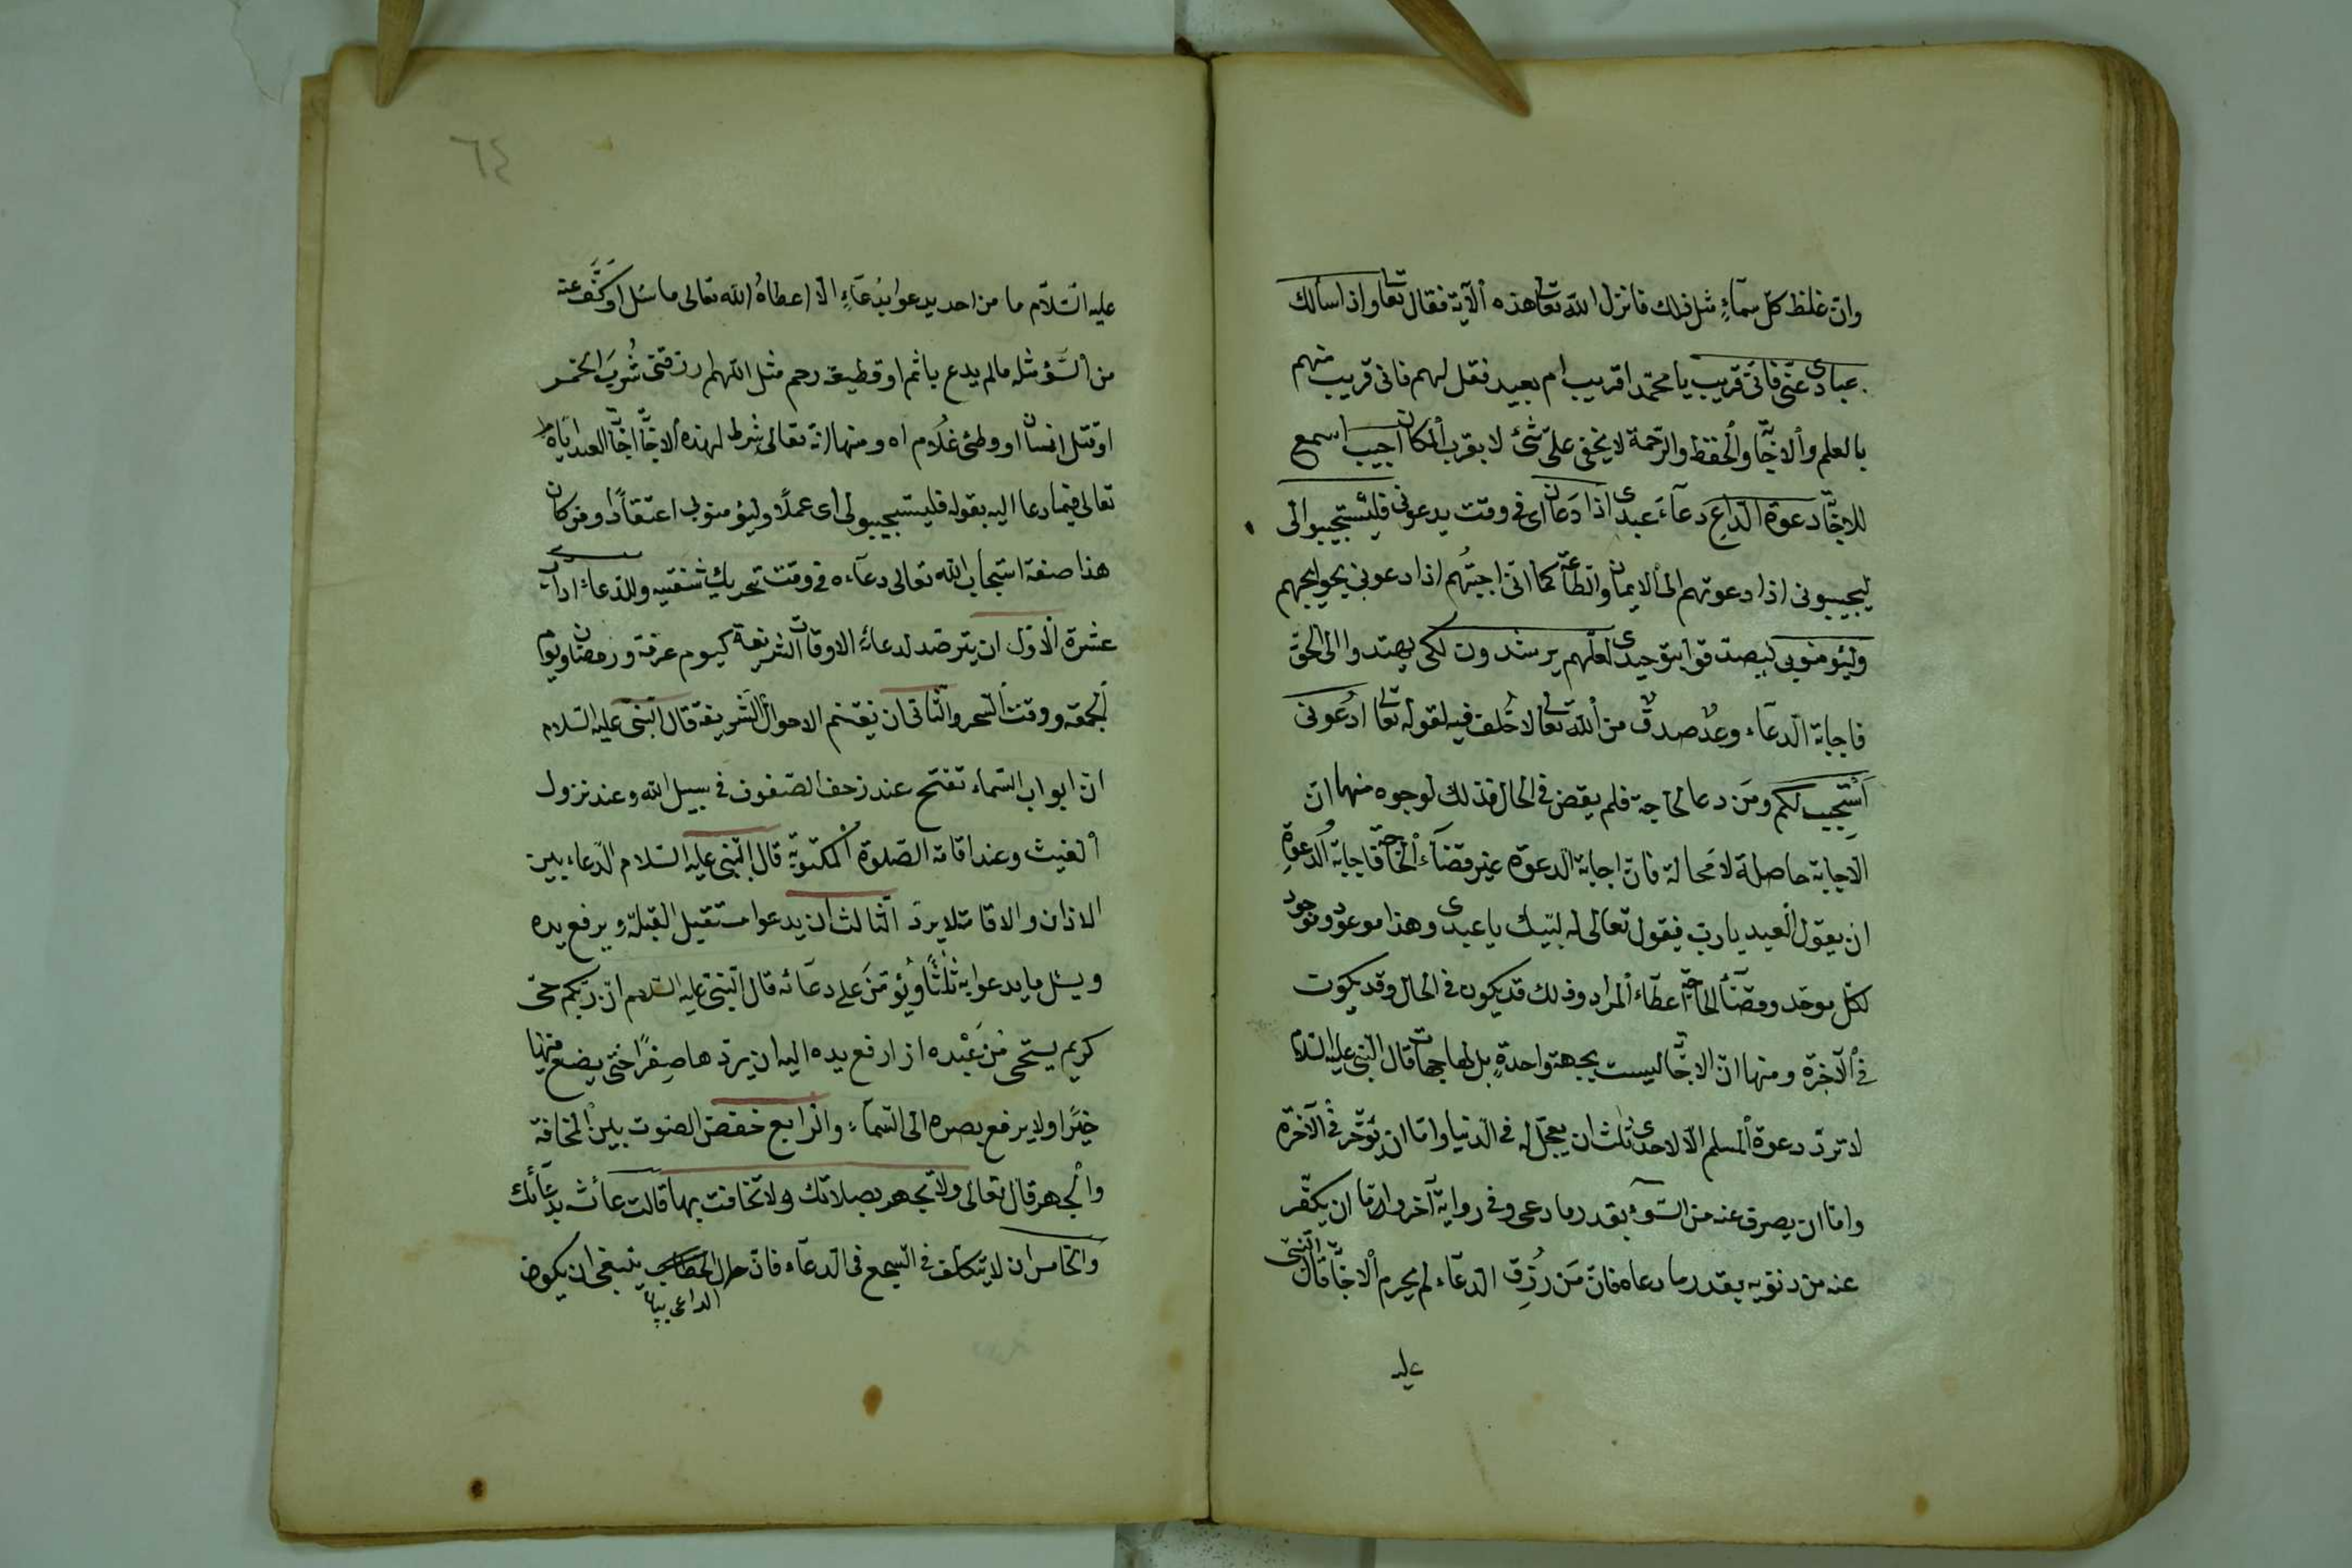 وان غلظ كل سمآءٍ مثل ذلك فانزل الله تعالى هذه الآية فقال تعالى واذا سألك
عبادى عنّى فانى قريب يا محمد اقريب ام بعيد فقل لهم فانى قريب منهم
بالعلم والاجابة والحفظ والرّحمة لا يخفى علىّ شئ لا بقرب المكان اجيب اسمع
للاجابة دعوة الدّاع دعآء عبدى اذا دعان اى فى وقت يدعونى فليستجيبوا لى
ليجيبونى اذا دعوتهم الى الايمان والطاعة كما انى اجبتهم اذا دعونى بحوايجهم
وليؤمنوبى ليصدقوا بتوحيدى لعلّهم يرشدون لكى يهتدوا الى الحق
فاجابة الدعآء وعدٌ صدقٌ من الله تعالى لا خلف فيه لقوله تعالى ادعونى
استجب لكم ومن دعا لحاجة فلم يقض فى الحال فذلك لوجوه منها ان
الاجابة حاصلة لا محالة فان اجابة الدعوة غير قضآء الحاجة فاجابة الدعوةِ
ان يقول العبد يا رب فيقول تعالى له لبّيك يا عبدى وهذا موعود وموجود
لكل موحّد وقضآء الحاجة اعطآء المراد وذلك قد يكون فى الحال وقد يكون
فى الآخرة ومنها ان الاجابة ليست بجهة واحدةٍ بل لها جهات قال النبى عليه السلام
لا تردّ دعوة المسلم الّا لاحدى ثلث ان يعجّل له فى الدنيا وامّا ان يؤخّر فى الآخرة
وامّا ان يصرف عنه من السّوء بقدر ما دعى وفى رواية آخر وامّا ان يكفّر
عنه من ذنوبه بقدر ما دعاه فانّ مَن رُزِق الدعآء لم يحرم الاجابة قال النبى
عليه
٦٤
عليه السّلام ما من احد يدعوا بدُعآءٍ الّا اعطاهُ الله تعالى ما سُئل او كفّ عنه
من السّؤ مثله مالم يدع باثم او قطيعة رحم مثل اللهم ارزقنى شُربَ الخمر
او قتل انسان او وطئ غلام اه ومنها انّه تعالى شرط لهذه الاجابة اجابة العبد ايّاه
تعالى فيما دعا اليه بقوله فليستجيبولى اى عملًا وليؤمنوبى اعتقادًا ومن كان
هذا صفة استجاب الله تعالى دعآءه فى وقت تحريك شفتيه وللدّعاء اداب
عشرة الاول ان يترصّد لدعائه الاوقات الشريفة كيوم عرفة ورمضان ويوم
الجمعة ووقت السحر والثانى ان يغتنم الاحوال الشريفة قال النبى عليه السلام
انّ ابواب السّماء تفتح عند زحف الصفوف فى سبيل الله وعند نزول
الغيث وعند اقامة الصّلوة المكتوبة قال النبى عليه السلام الدّعاء بين
الاذان والاقامة لا يردّ الثالث ان يدعوا مستقبل القبلة ويرفع يده
ويسئل ما يدعوا به ثلثًا ويُؤمّن على دعآئه قال النبى عليه السلام ان ربكم حىّ
كريم يستحى من عبْده اذ ارفع يده اليه ان يردّها صِفرًا حتى يضع فيها
خيرًا ولا يرفع بصره الى السّمآء والرابع خفض الصّوت بين المخافة
والجهر قال تعالى ولا تجهر بصلاتك ولا تخافت بها قالت عائشة بدعآئك
والخامس ان لا يتكلف فى السجع فى الدعآء فانّ حال ينبغى ان يكون
الداعى